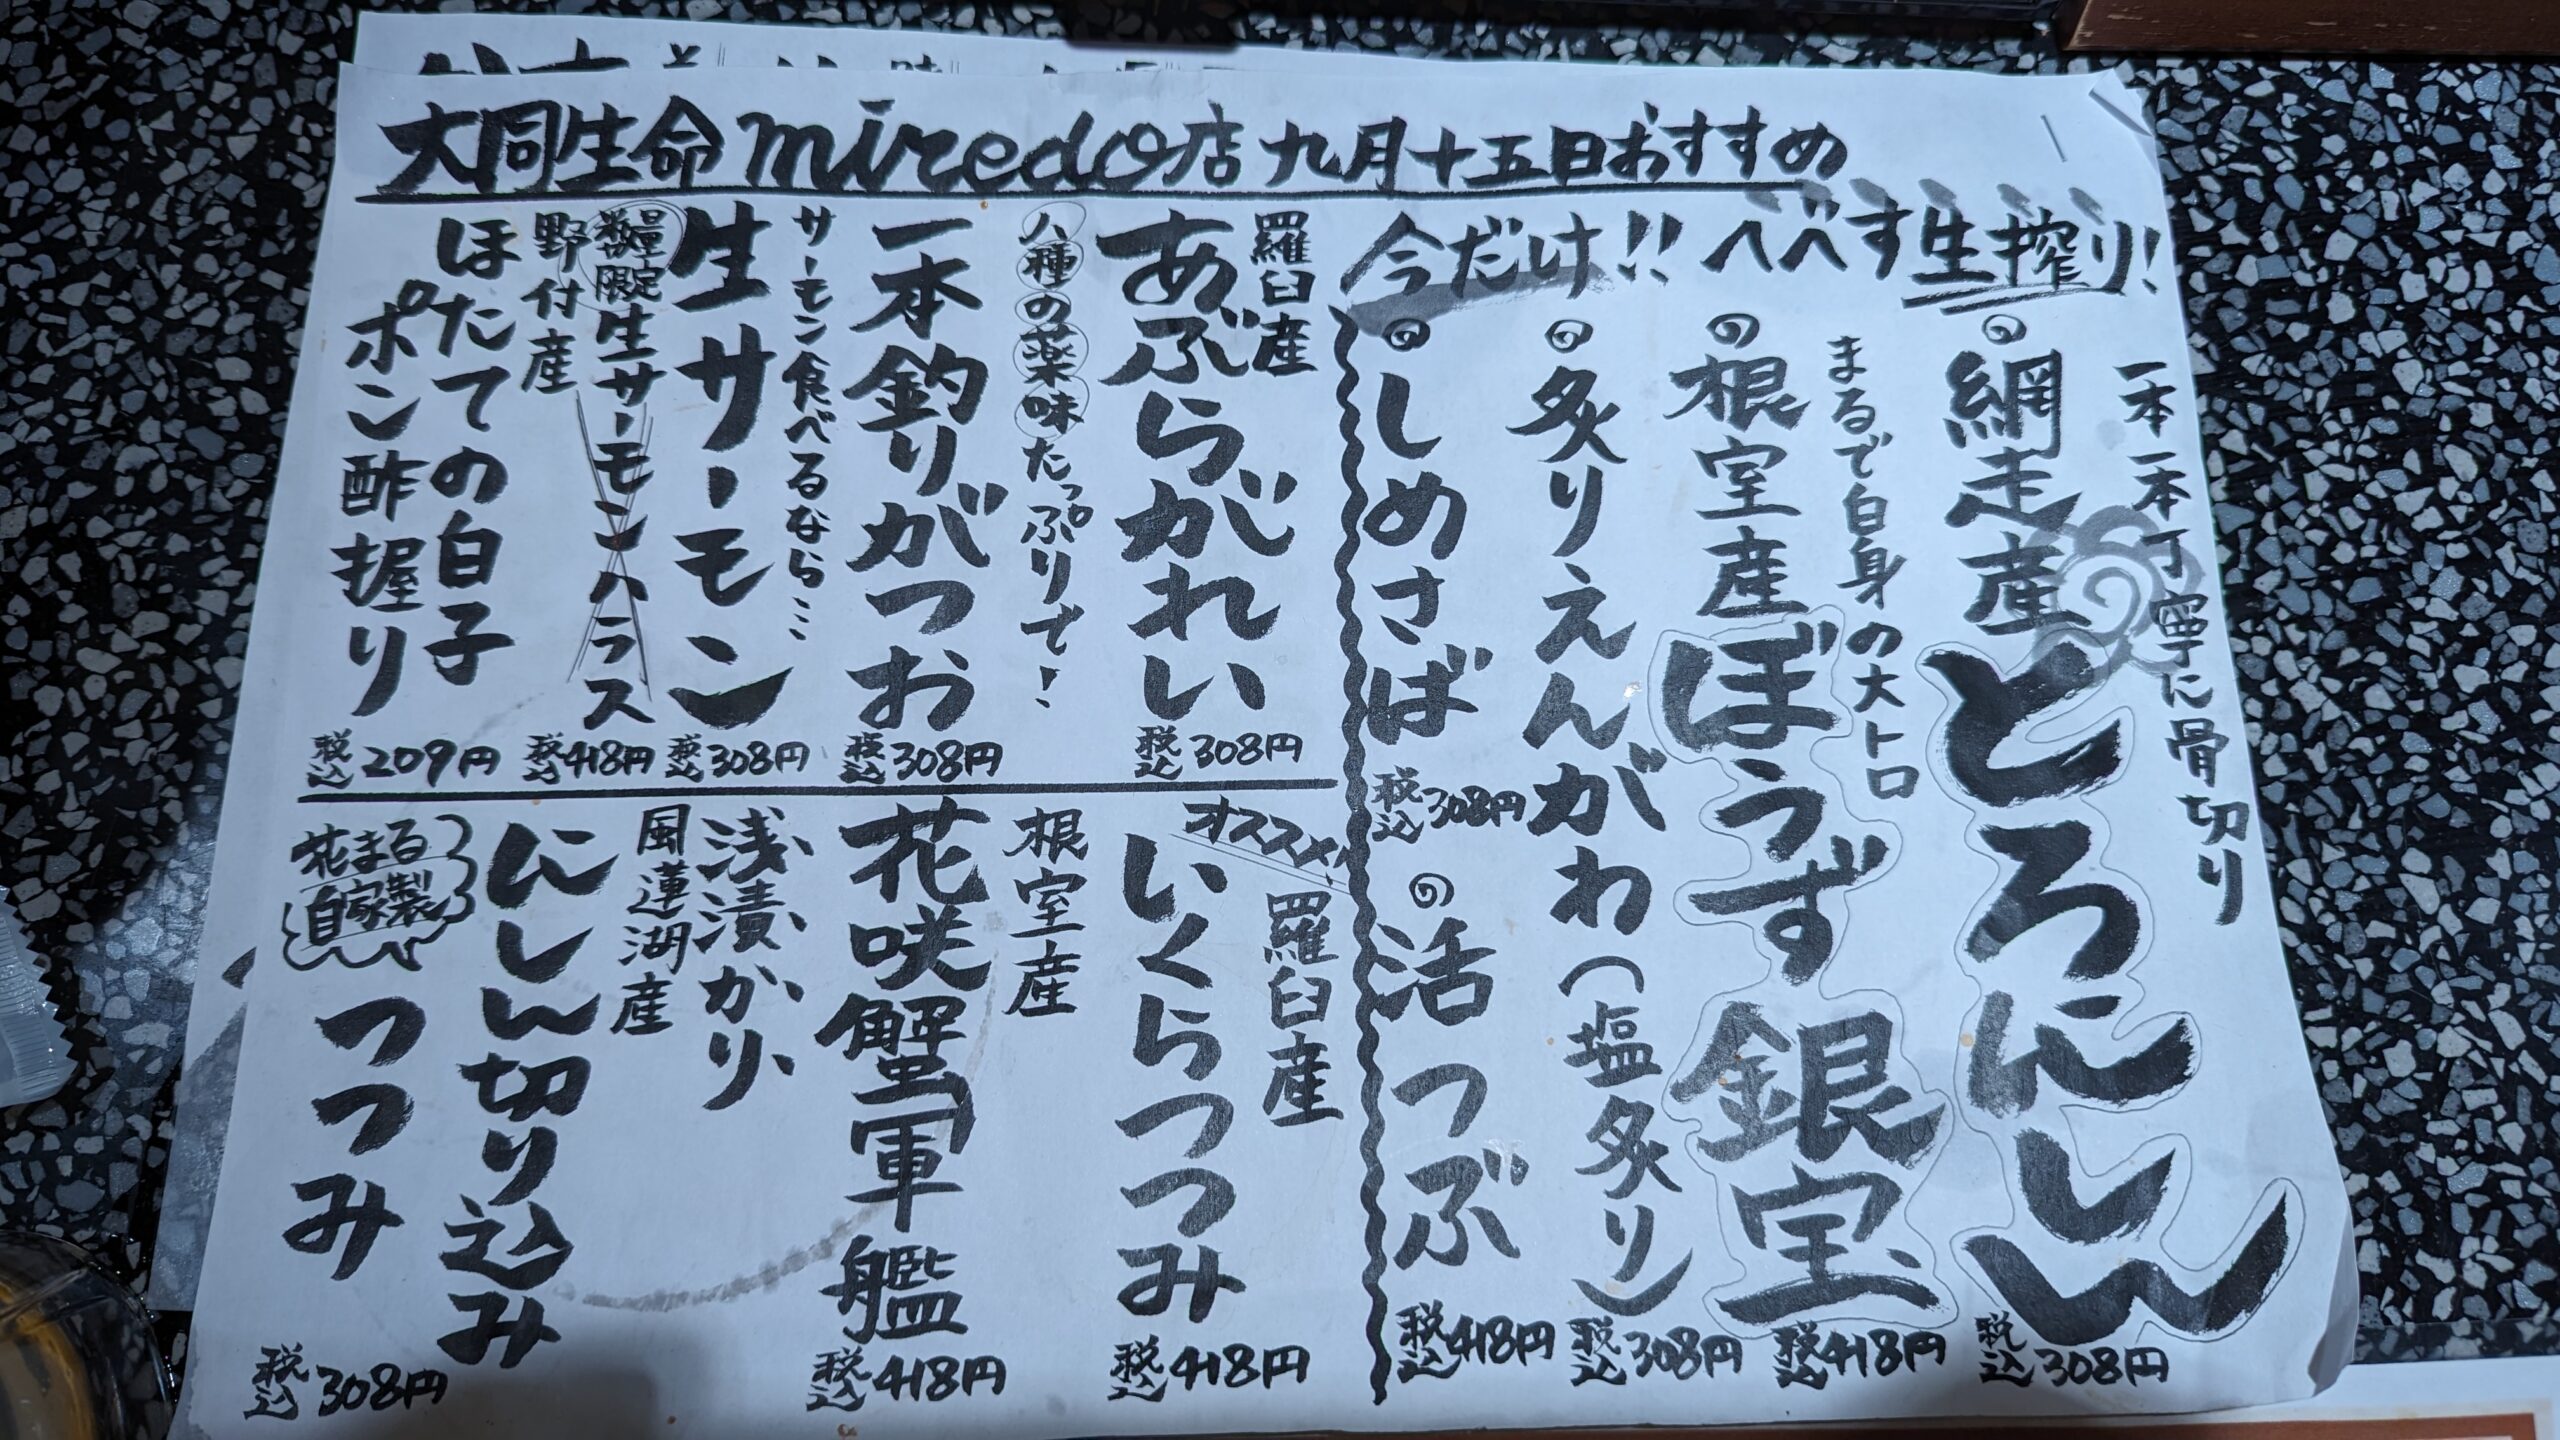 大同生命miredo店九月十五日おすすめ
今だけ!!へべす生搾り!
一本一本丁寧に骨切り
網走産とろにしん
税込308円
まるで白身の大トロ
根室産ぼうず銀宝
税込418円
炙りえんがわ(塩炙り)
税込308円
しめさば
税込308円
活つぶ
税込418円
羅臼産
あぶらがれい
税込308円
八種の薬味たっぷりで!
一本釣りがつお
税込308円
サーモン食べるなら…
生サーモン
税込308円
数量限定生サーモンハラス
税込418円
野付産
ほたての白子
ポン酢握り
税込209円
オススメ!
羅臼産
いくらつつみ
税込418円
根室産
花咲蟹軍艦
税込418円
浅漬かり
風蓮湖産
にしん切り込み
花まる自家製
つつみ
税込308円